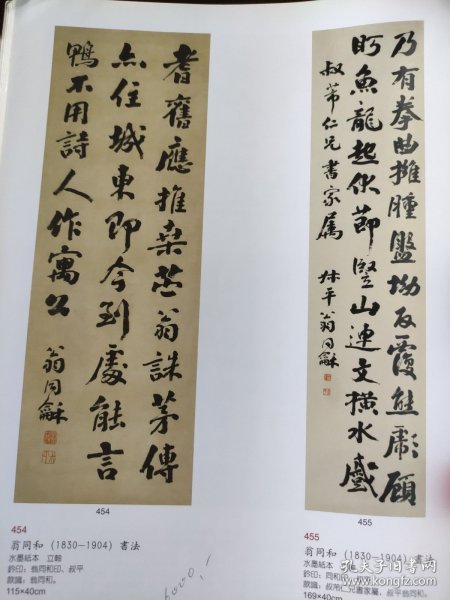 乃有拳曲擁腫盤坳反覆熊彪顧
盼魚龍起伏節豎山連文橫水蹙
叔芾仁兄書家屬 叔平翁同龢
耆舊應推桑苎翁誅茅傳
亦住城東即今到處能言
鴨不用詩人作寓公
翁同龢
454
455
454
翁同和 (1830-1904) 書法
水墨紙本 立軸
鈐印：翁同和印、叔平
款識：翁同和。
115×40cm
6000,-
455
翁同和 (1830-1904) 書法
水墨紙本
鈐印：同和
款識：叔芾仁兄書家屬，叔平翁同和。
169×40cm
孔夫子旧书网